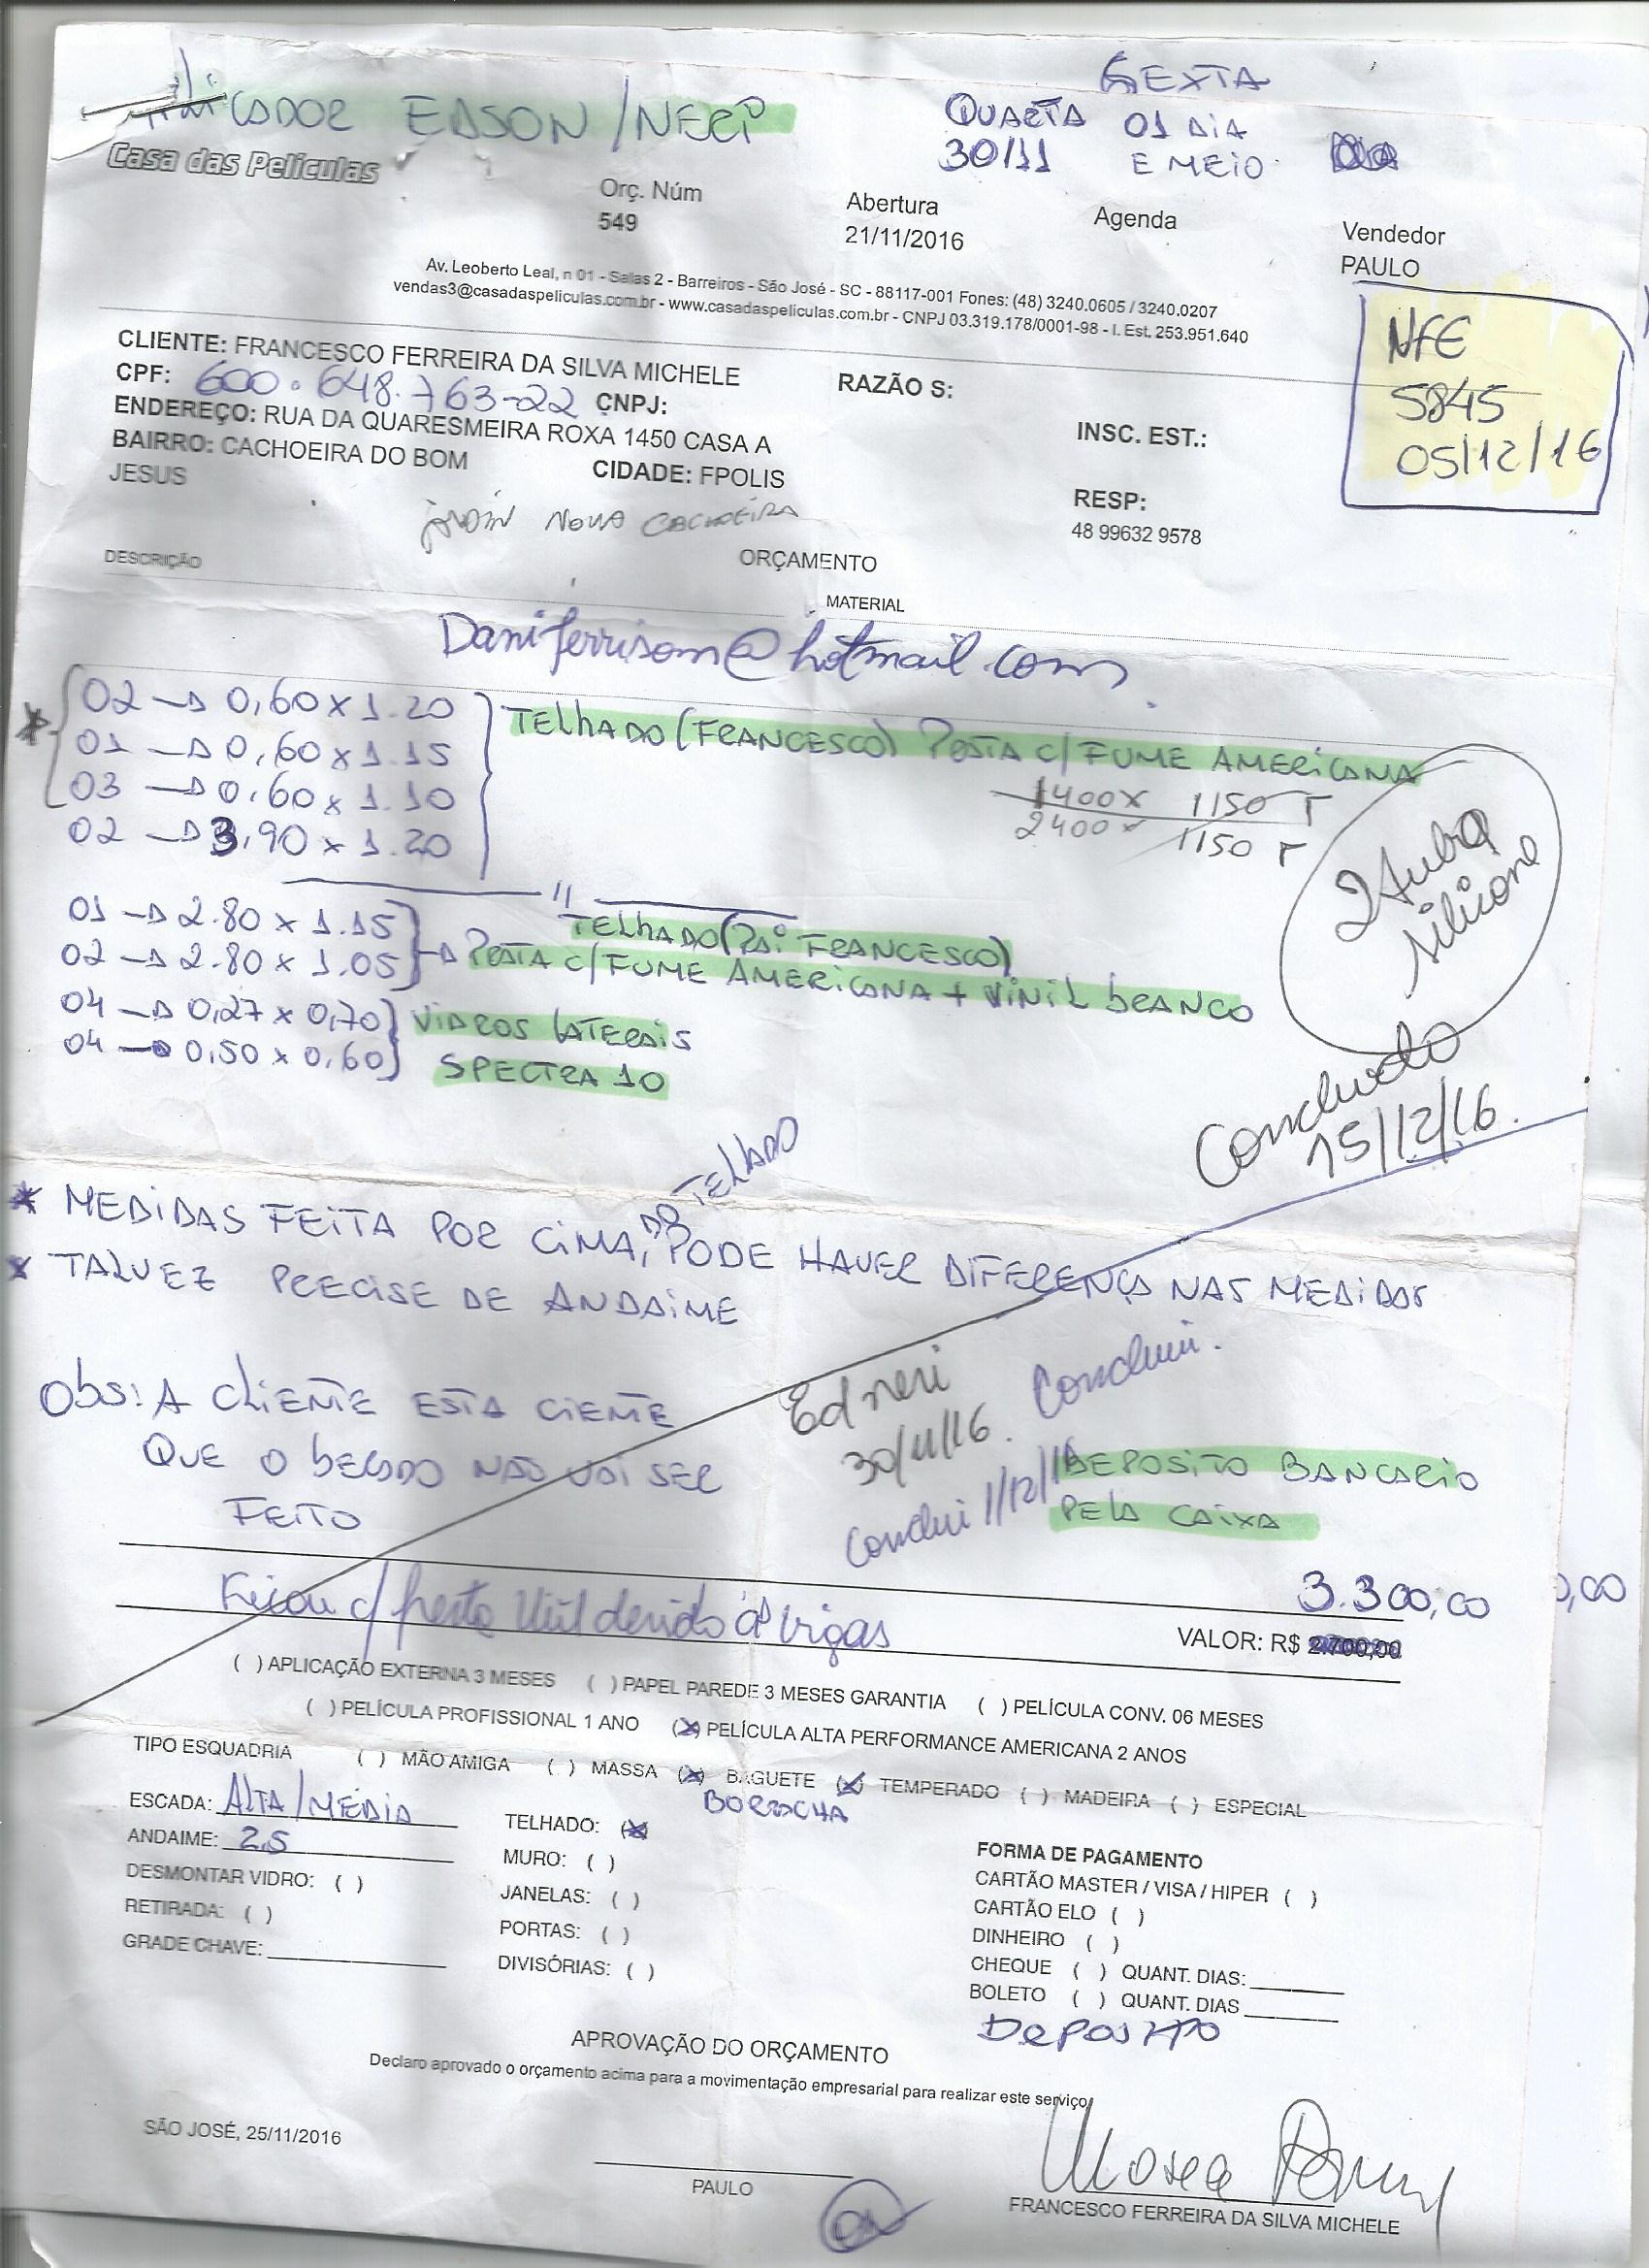 APLICADOR EDSON/NERI
SEXTA
QUARTA 01 DIA
30/11 E MEIO
Casa das Películas
Orç. Núm
549
Abertura
21/11/2016
Agenda
Vendedor
PAULO
Av. Leoberto Leal, n 01 - Salas 2 - Barreiros - São José - SC - 88117-001 Fones: (48) 3240.0605 / 3240.0207
vendas3@casadaspeliculas.com.br - www.casadaspeliculas.com.br - CNPJ 03.319.178/0001-98 - I. Est. 253.951.640
NFE
5845
05/12/16
CLIENTE: FRANCESCO FERREIRA DA SILVA MICHELE
RAZÃO S:
CPF: 600.648.763-22 CNPJ:
ENDEREÇO: RUA DA QUARESMEIRA ROXA 1450 CASA A
INSC. EST.:
BAIRRO: CACHOEIRA DO BOM
JESUS
CIDADE: FPOLIS
RESP:
48 99632 9578
NOVA CACHOEIRA
DESCRIÇÃO
ORÇAMENTO
MATERIAL
Daniferrisom@hotmail.com
02 → 0,60 x 1.20
01 → 0,60 x 1.15
03 → 0.60 x 1.10
02 → 3,90 x 1.20
TELHADO (FRANCESCO) PRATA C/ FUME AMERICANA
1400 x 1150 T
2400 x 1150 T
01 → 2.80 x 1.15
02 → 2.80 x 1.05
TELHADO (PAI FRANCESCO)
PRATA C/ FUME AMERICANA + VINIL BRANCO
04 → 0,27 x 0,70
04 → 0,50 x 0,60
VIDROS LATERAIS
SPECTRA 10
2 tubos
silicone
Concluido
15/12/16.
* MEDIDAS FEITA POR CIMA, DO TELHADO PODE HAVER DIFERENÇA NAS MEDIDAS
* TALVEZ PRECISE DE ANDAIME
Obs: A CLIENTE ESTA CIENTE
QUE O BEIRADO NÃO VAI SER
FEITO
Edneri
30/11/16. Conclui.
Conclui 1/12/16
DEPOSITO BANCARIO
PELA CAIXA
3.300,00
0,00
Ficou c/ fresta Vinil devido às vigas
VALOR: R$ 2.700,00
( ) APLICAÇÃO EXTERNA 3 MESES ( ) PAPEL PAREDE 3 MESES GARANTIA ( ) PELÍCULA CONV. 06 MESES
( ) PELÍCULA PROFISSIONAL 1 ANO (X) PELÍCULA ALTA PERFORMANCE AMERICANA 2 ANOS
TIPO ESQUADRIA ( ) MÃO AMIGA ( ) MASSA (X) BAGUETE (X) TEMPERADO ( ) MADEIRA ( ) ESPECIAL
BORRACHA
ESCADA: ALTA/MEDIA
ANDAIME: 2,5
DESMONTAR VIDRO: ( )
RETIRADA: ( )
GRADE CHAVE:
TELHADO: (X)
MURO: ( )
JANELAS: ( )
PORTAS: ( )
DIVISÓRIAS: ( )
FORMA DE PAGAMENTO
CARTÃO MASTER / VISA / HIPER ( )
CARTÃO ELO ( )
DINHEIRO ( )
CHEQUE ( ) QUANT. DIAS:
BOLETO ( ) QUANT. DIAS
DEPOSITO
APROVAÇÃO DO ORÇAMENTO
Declaro aprovado o orçamento acima para a movimentação empresarial para realizar este serviço
SÃO JOSÉ, 25/11/2016
PAULO
FRANCESCO FERREIRA DA SILVA MICHELE